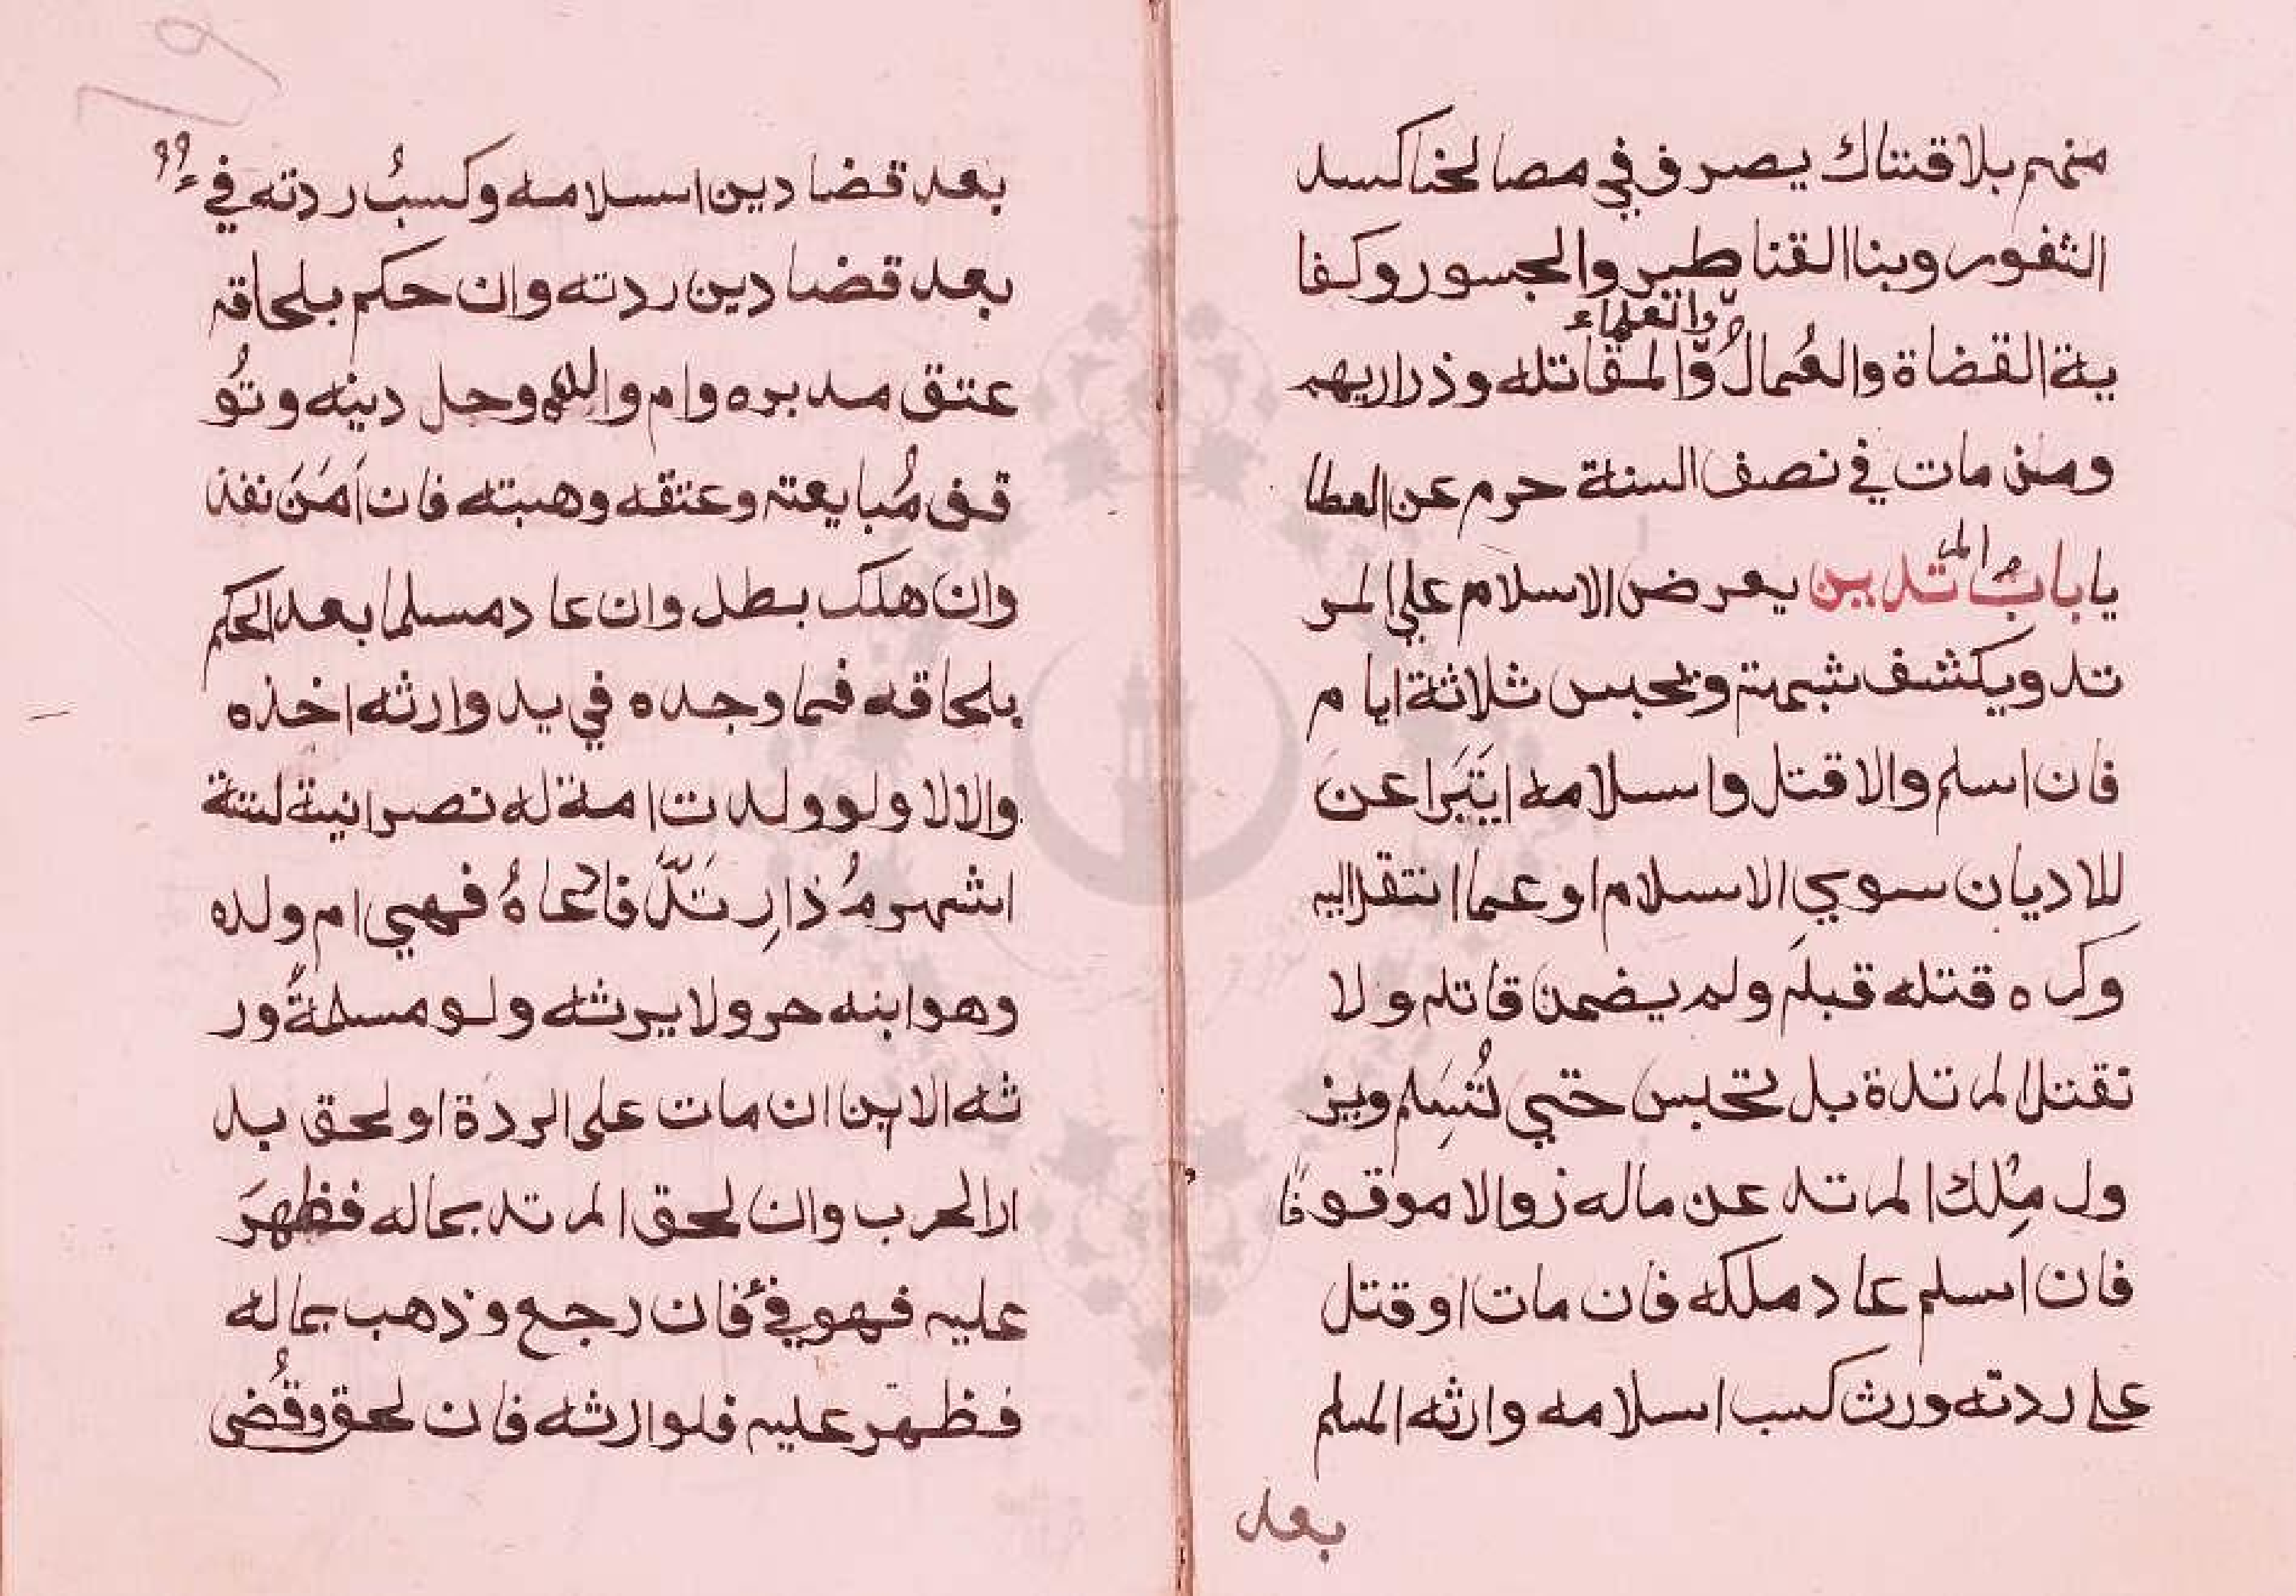 منهم بلا قتتاك يصرف في مصالحنا كسد
الثغور وبنا القناطير والجسور وكفا
والعلماء
ية القضاة والعُمالُ والمقاتله وذراريهم
ومن مات في نصف السنة حرم عن العطا
يا بابُ المرتدين يعرض الاسلام علي المر
تد ويكشف شبهته ويحبس ثلاثة ايام
فان اسلم والا قتل واسلامه ايتَبَرا عن
للاديان سوي الاسلام او عما انتقل اليه
وكره قتله قبله ولم يضمن قاتله ولا
تقتل المرتدة بل تحبس حتي تُسلِم ويز
ول مِلك المرتد عن ماله زوالا موقوفا
فان اسلم عاد ملكه فان مات او قتل
علي ردته ورث كسب اسلامه وارثه المسلم
بعد
٦٩
بعد قضا دين اسلامه وكسبُ ردته فيءُ
بعد قضا دين ردته وان حكم بلحاقه
عتق مدبره وام والده وحل دينه وتُو
قف مُبايعته وعتقه وهبته فان اَمَنَ نفذ
وان هلك بطل وان عاد مسلما بعد الحكم
بلحاقه فما وجده في يد وارثه اخذه
والا لا ولو ولدت امة له نصرانية لستة
اشهر مُذ ارِتَدَّ فادعاهُ فهي ام ولده
وهو ابنه حر ولا يرثه ولو مسلمةً ور
ثه الابن ان مات على الردة او لحق بد
ار الحرب وان لحق المرتد بماله فظهرَ
عليه فهو فيٌ فان رجع وذهب بماله
فظهر عليه فلوارثه فان لحق وقُضى